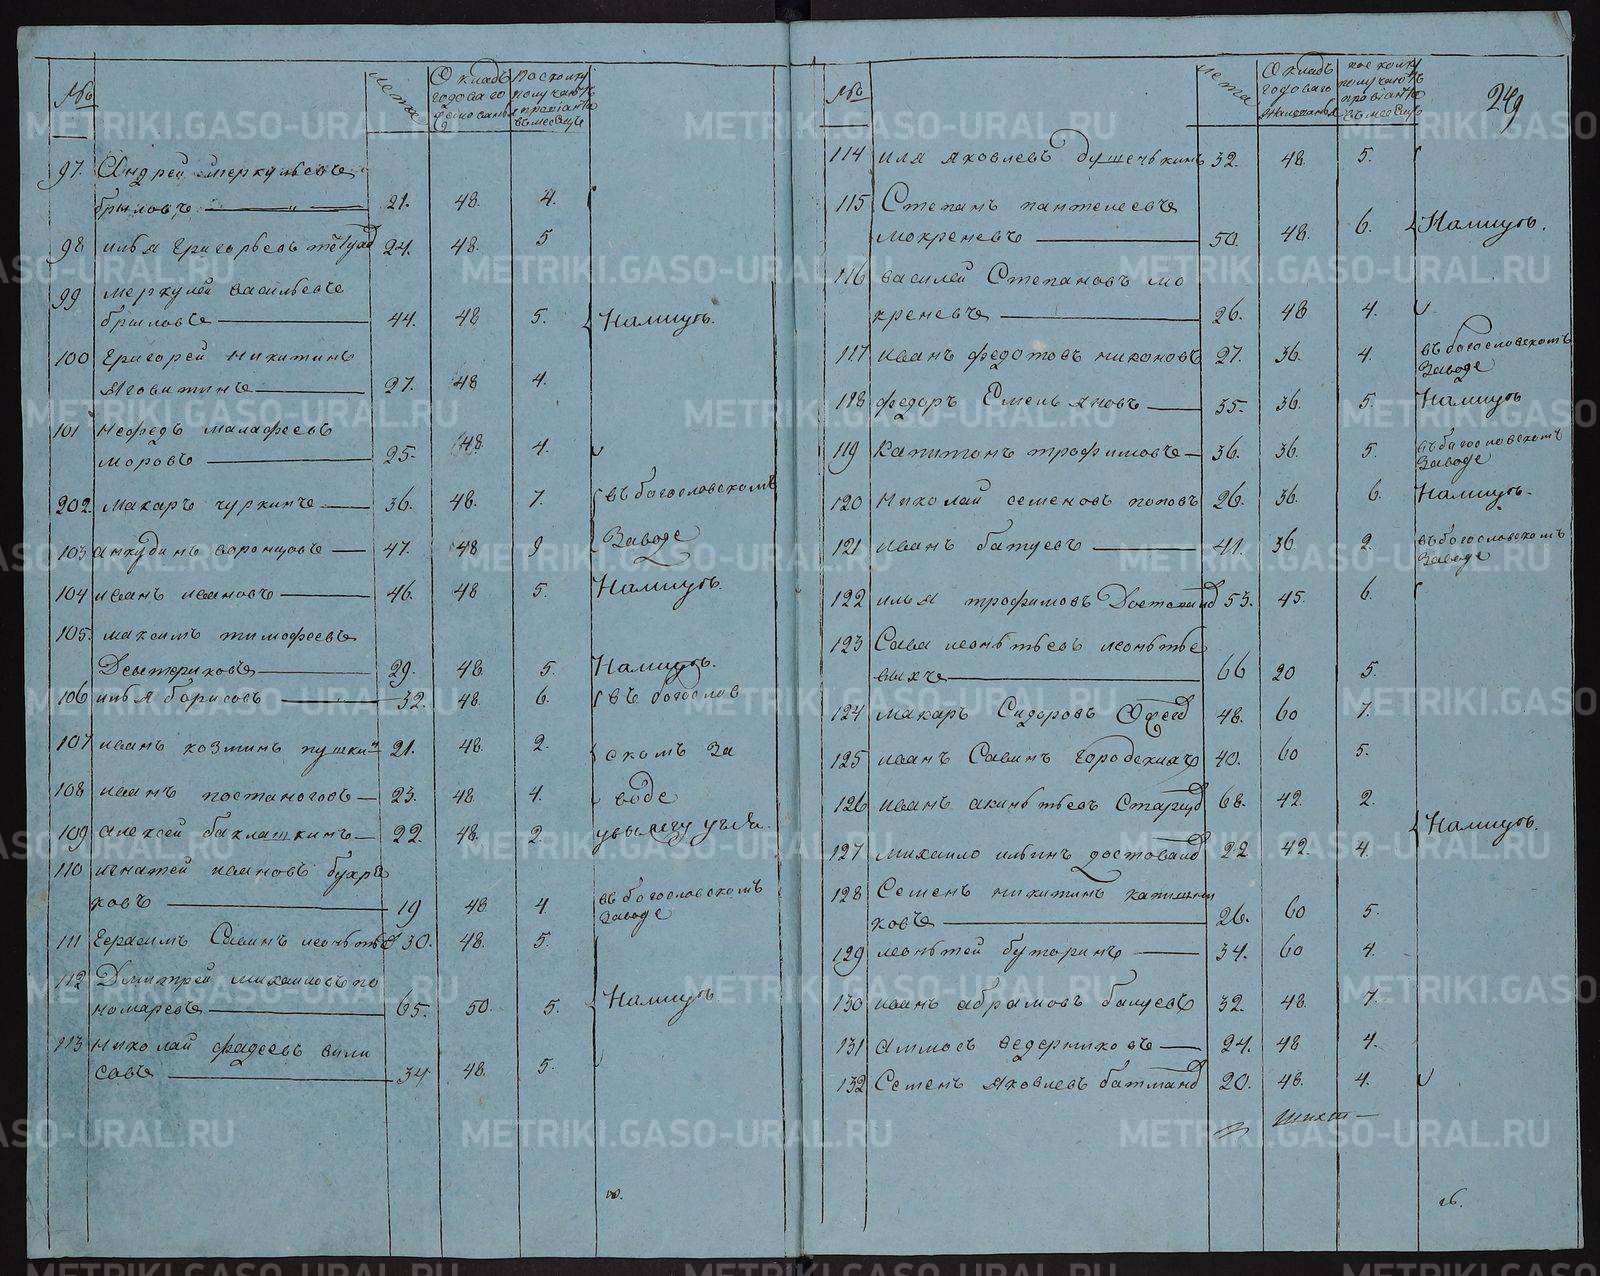 №
лета
Окладъ
годоваго
жалованья
Посколку
получаютъ
провіанта
въ месецъ
97. Андрей Меркульевъ
брыловъ 21. 48. 4.
98 илья Григорьевъ 24. 48. 5
99 меркулей васильевъ
брыловъ 44. 48 5. Налицуъ.
100 Григорей Никитинъ
Яговитинъ 27. 48 4.
101 Нефедъ малафеевъ
моровъ 25. 48. 4.
202. Макаръ чуркинъ 36. 48. 7. въ богословскомъ
103 анкудинъ воронцовъ 47. 48 9 Заводе
104 иванъ ивановъ 46. 48 5. Налицуъ.
105. максимъ тимофеевъ
29. 48. 5. Налицуъ.
106 илья борисовъ 32. 48. 6. въ богослов
107 иванъ козминъ пушкин 21. 48. 2. скомъ за
108 иванъ постаноговъ 23. 48 4. воде
109 алексей баклашкинъ 22. 48. 2.
110 игнатей ивановъ бухря
ковъ 19 48. 4. въ богословскомъ
заводе
111 Герасимъ Савинъ 30. 48. 5.
112 Дмитрей михаиловъ по
номаревъ 65. 50. 5. Налицуъ
113 Николай фадеевъ вили
совъ 34. 48. 5.
10.
№
лета
Окладъ
годоваго
жалованья
посколку
получаютъ
провіанта
въ месецъ
249
114 иля яковлевъ душечькинъ 32. 48. 5.
115 Степанъ пантелеевъ
мокреневъ 50. 48. 6. Налицуъ.
116 василей Степановъ мо
креневъ 26. 48 4.
117 иванъ федотовъ никоновъ 27. 36. 4. въ богословскомъ
Заводе
118 федоръ Емельяновъ 35. 36. 5. Налицуъ
119 Капитонъ трофимовъ 36. 36. 5. въ богословскомъ
Заводе
120 Николай семеновъ поповъ 26. 36. 6. Налицуъ.
121 иванъ батуевъ 41. 36 2. въ богословскомъ
Заводе
122 илья трофимовъ 53. 45. 6.
123 Сава леонтьевъ леонтье
выхъ 66 20 5.
124 макаръ Сидоровъ 48. 60 7.
125 иванъ Савинъ городскихъ 40. 60 5.
126 иванъ акинтьевъ 68. 42. 2. Налицуъ.
127 михаило ильинъ 22 42. 4.
128 Семенъ никитинъ
ковъ 26. 60 5.
129 леонтей буторинъ 34. 60 4.
130 иванъ абрамовъ 32. 48. 7.
131 аммосъ ведерниковъ 24. 48 4.
132 Семенъ яковлевъ 20. 48. 4.
METRIKI.GASO-URAL.RU